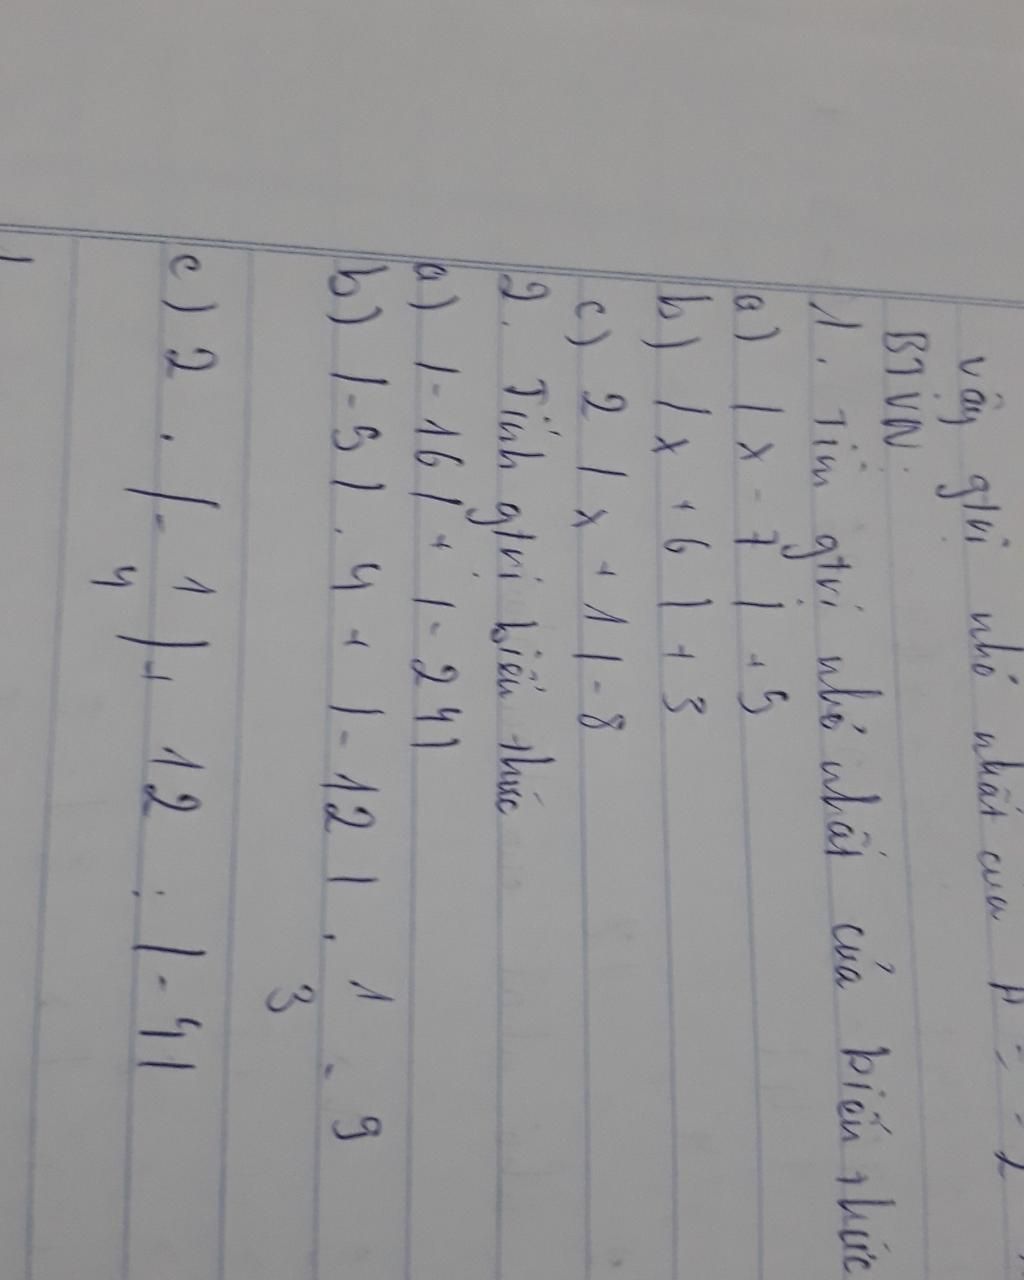 Vậy gtrị nhỏ nhất của A = - 2
BTVN.
1. Tìm gtrị nhỏ nhất của biến thức
a) |x - 7| + 5
b) |x + 6| + 3
c) 2|x + 1| - 8
2. Tính gtrị biến thức
a) |-16| + |-24|
b) |-5| . 4 + |-12| . 1/3 - 9
c) 2 . |-1/4| + 12 : |-4|